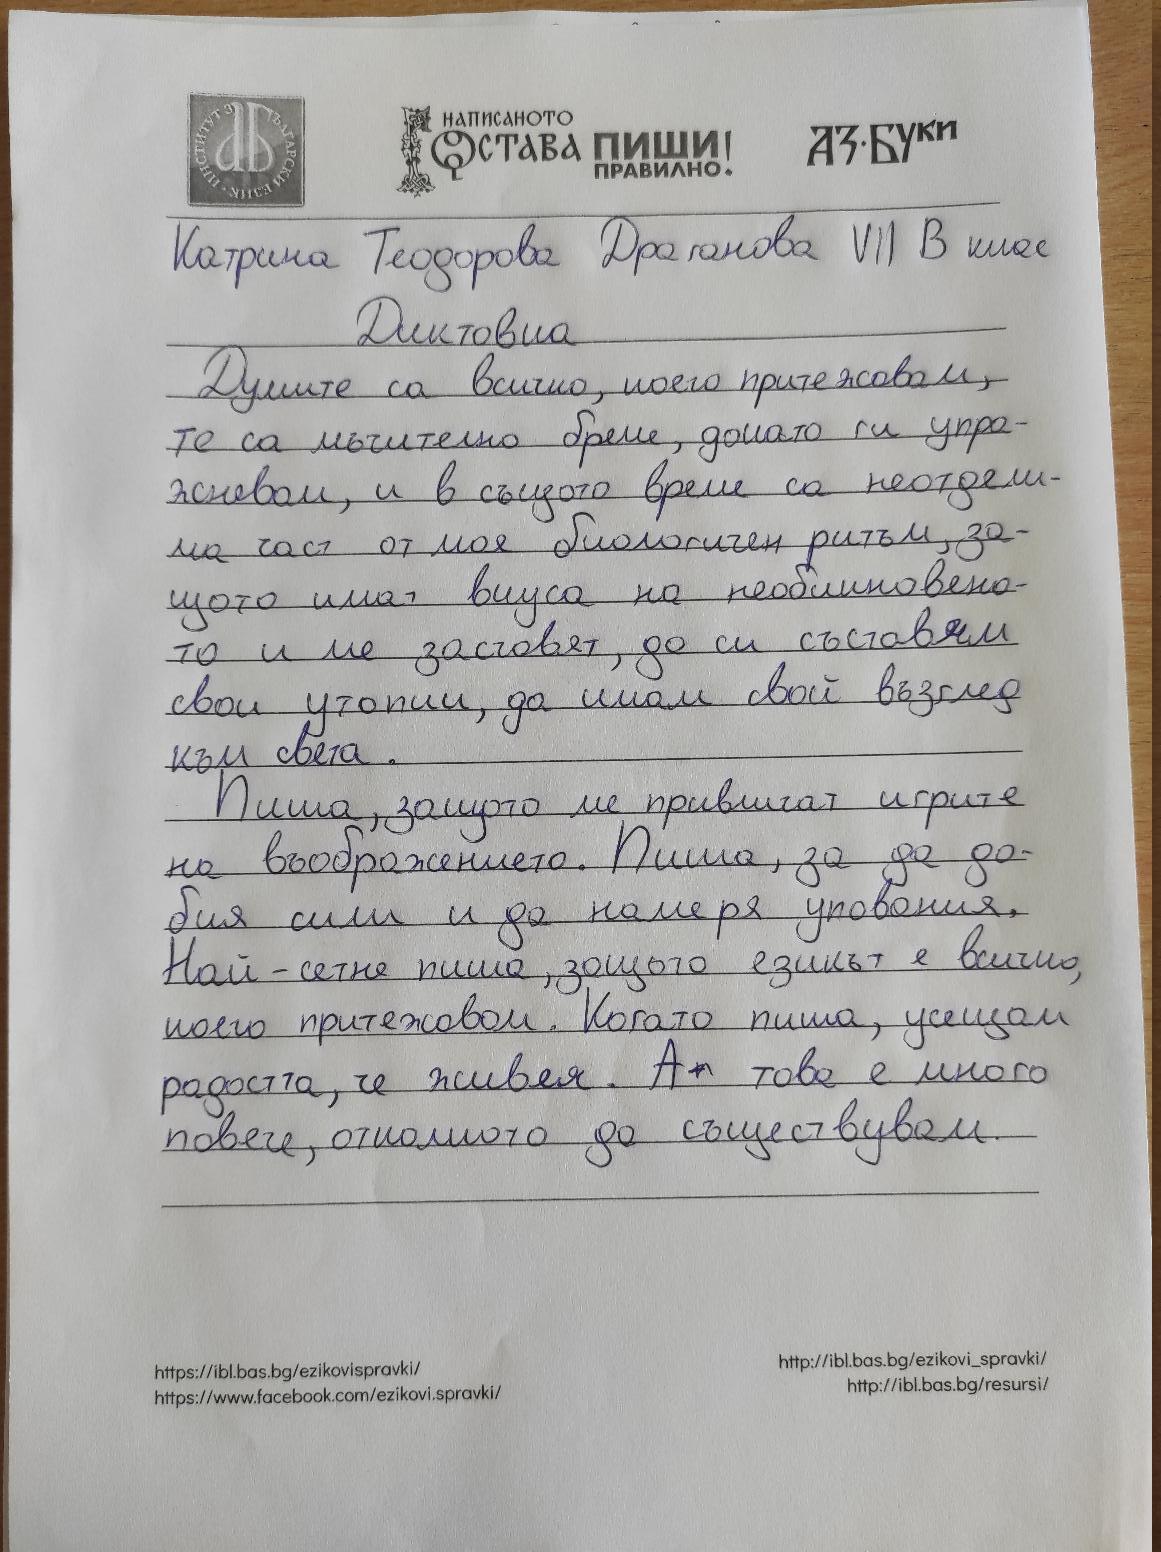 ИНСТИТУТ ЗА БЪЛГАРСКИ ЕЗИК
НАПИСАНОТО
ОСТАВА ПИШИ!
ПРАВИЛНО.
АЗ·БУКИ
Катрина Теодорова Драганова VII В клас
Диктовка
Думите са всичко, което притежавам,
те са мъчително бреме, докато ги упра-
жнявам, и в същото време са неотдели-
ма част от моя биологичен ритъм, за-
щото имат вкуса на необикновено-
то и ме заставят, да си съставям
свои утопии, да имам свой възглед
към света.
Пиша, защото ме привличат игрите
на въображението. Пиша, за да до-
бия сили и да намеря упования.
Най-сетне пиша, защото езикът е всичко,
което притежавам. Когато пиша, усещам
радостта, че живея. А това е много
повече, отколкото да съществувам.
https://ibl.bas.bg/ezikovispravki/
http://ibl.bas.bg/ezikovi_spravki/
https://www.facebook.com/ezikovi.spravki/
http://ibl.bas.bg/resursi/